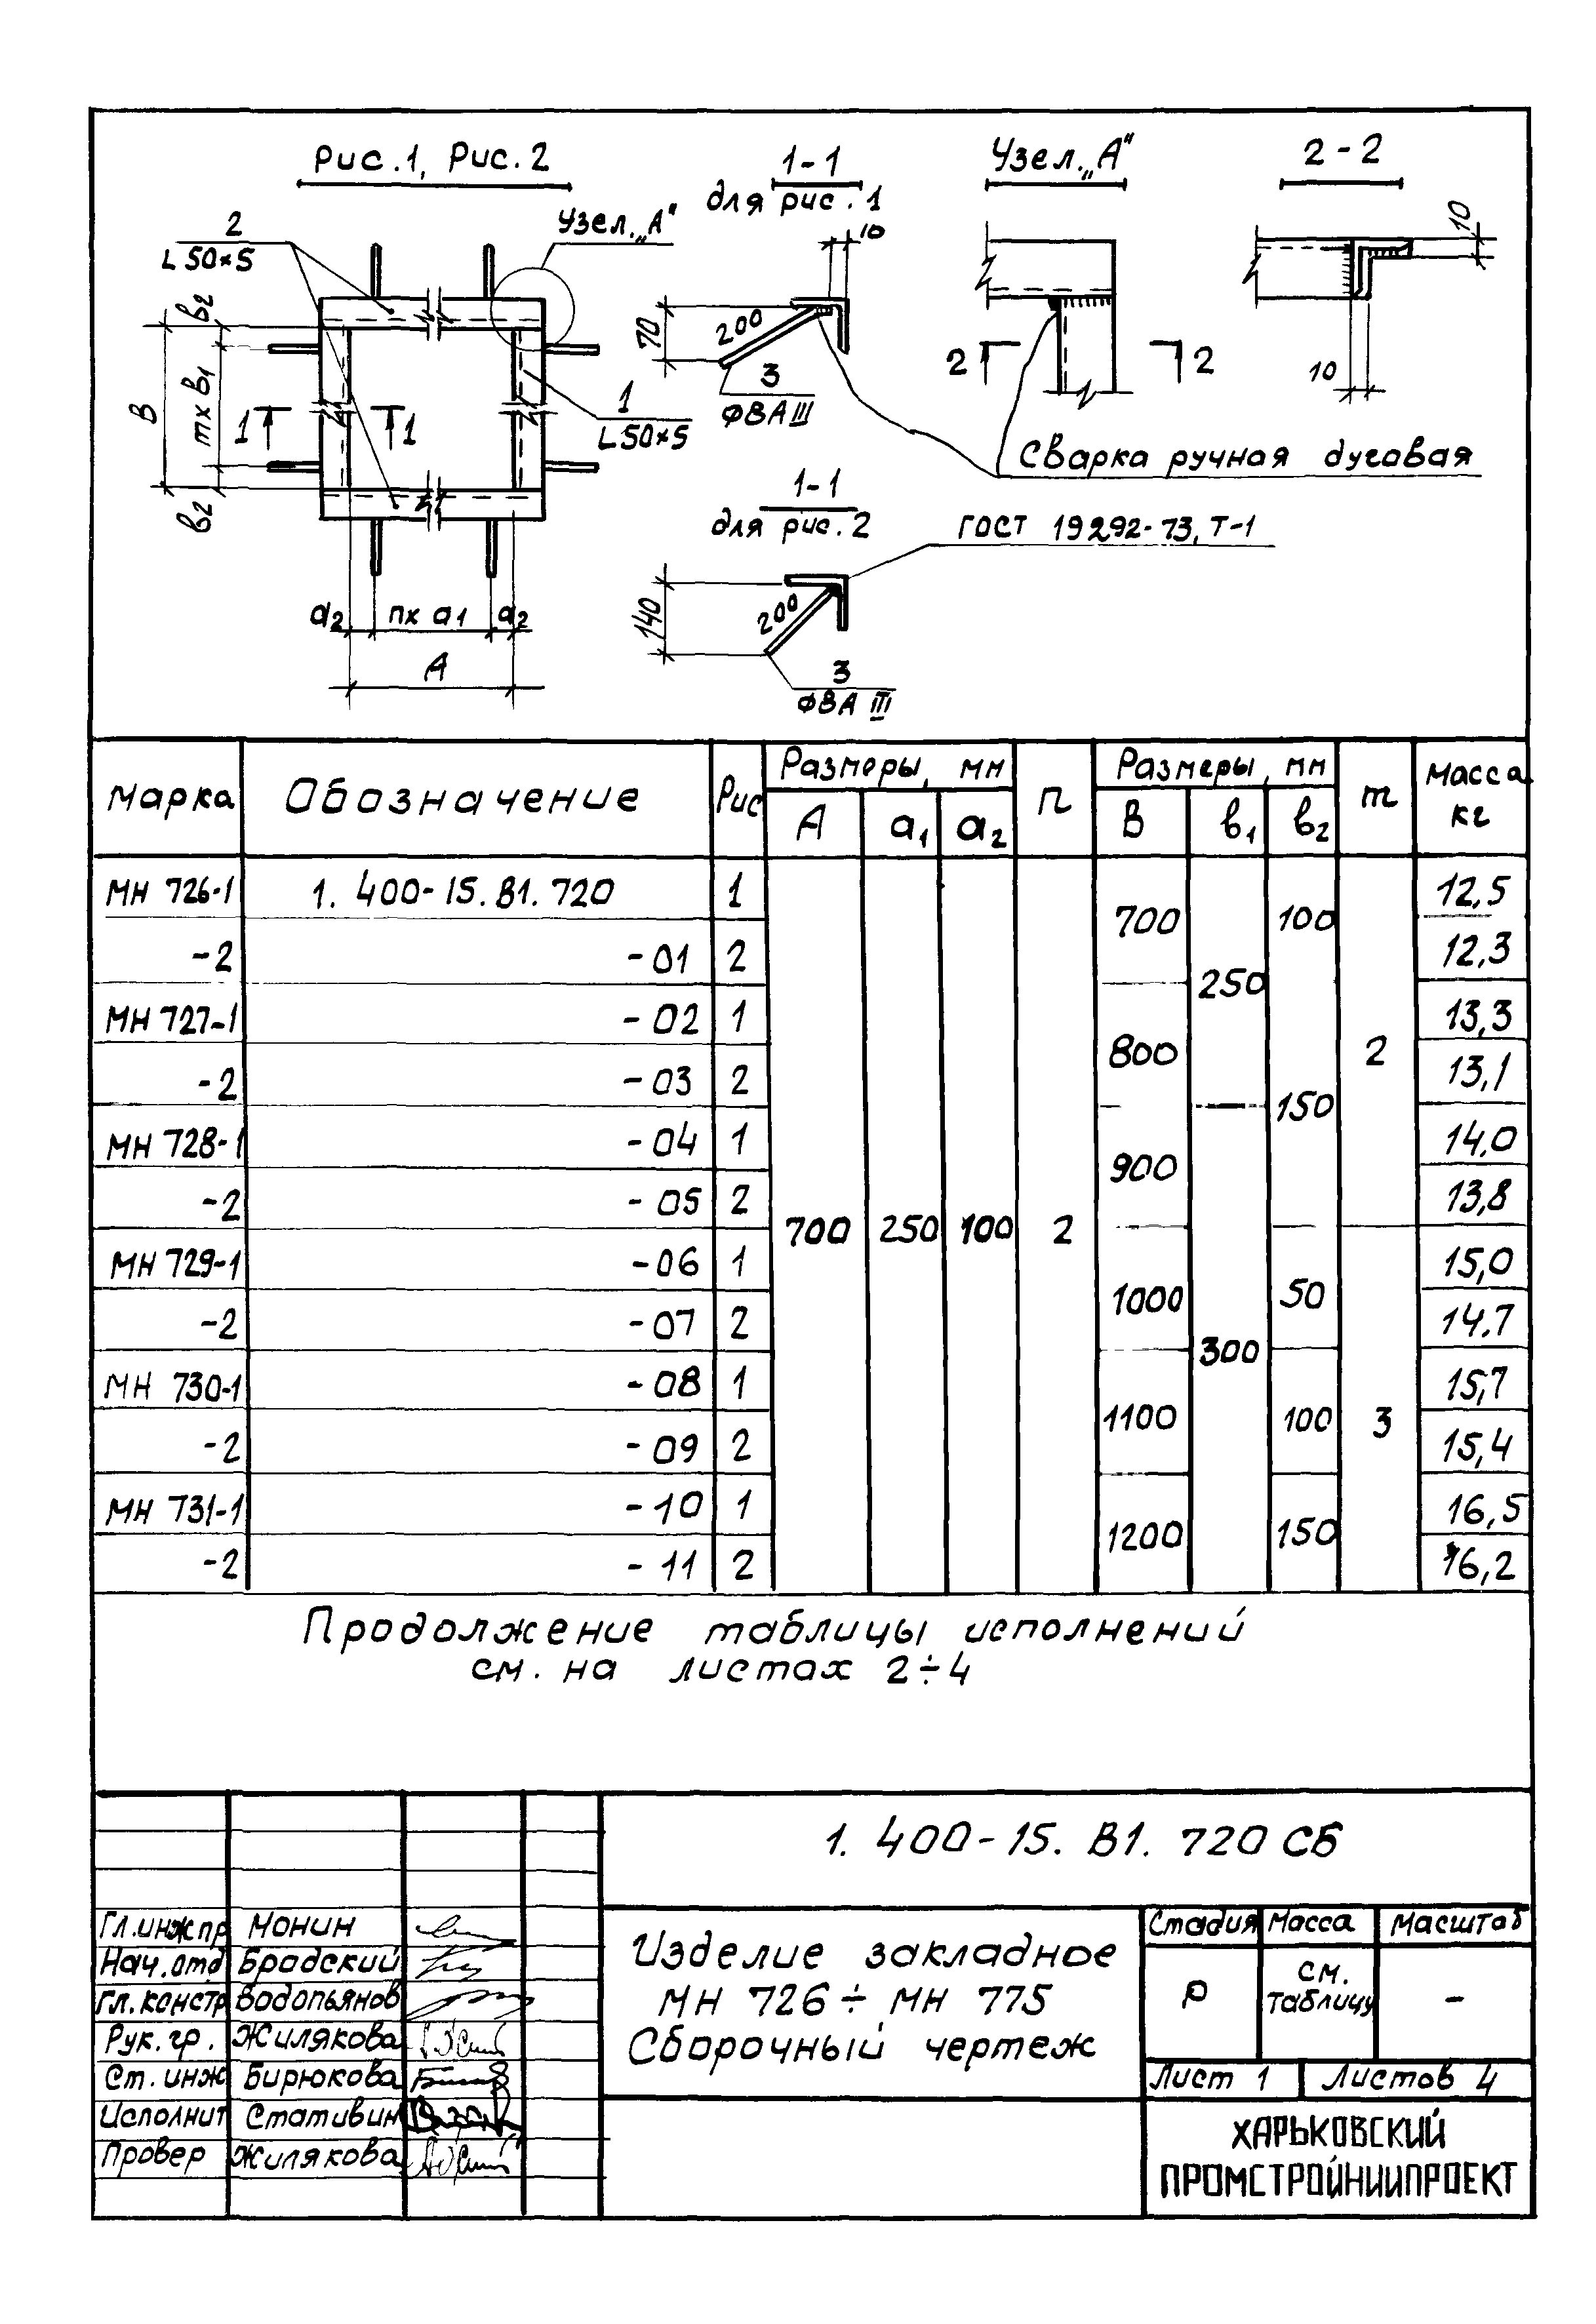 Рис.1, Рис.2
1-1
для рис. 1
Узел „А"
2-2
2
L50×5
Узел „А"
в2
В
m×в1
в2
1
1
1
L50×5
а2
n×а1
а2
А
10
70
200
3
Ф8АIII
2
2
10
10
Сварка ручная дуговая
1-1
для рис. 2
ГОСТ 19292-73, Т-1
140
200
3
Ф8А III
Марка
Обозначение
Рис
Размеры, мм
n
Размеры, мм
m
Масса
кг
А
а1
а2
В
в1
в2
МН 726-1 1.400-15.В1.720 1 12,5
700 100
-2 -01 2 12,3
250
МН 727-1 -02 1 13,3
800 2
-2 -03 2 13,1
150
МН 728-1 -04 1 14,0
900
-2 -05 2 13,8
700 250 100 2
МН 729-1 -06 1 15,0
1000 50
-2 -07 2 14,7
300
МН 730-1 -08 1 15,7
1100 100 3
-2 -09 2 15,4
МН 731-1 -10 1 16,5
1200 150
-2 -11 2 16,2
Продолжение таблицы исполнений
см. на листах 2÷4
1.400-15.В1.720 СБ
Гл.инж пр Монин
Нач.отд Бродский
Гл.констр Водопьянов
Рук.гр. Жилякова
Ст.инж Бирюкова
Исполнит Стативин
Провер Жилякова
Изделие закладное
МН 726÷МН 775
Сборочный чертеж
Стадия Масса Масштаб
Р
см.
таблицу
-
Лист 1 Листов 4
ХАРЬКОВСКИЙ
ПРОМСТРОЙНИИПРОЕКТ